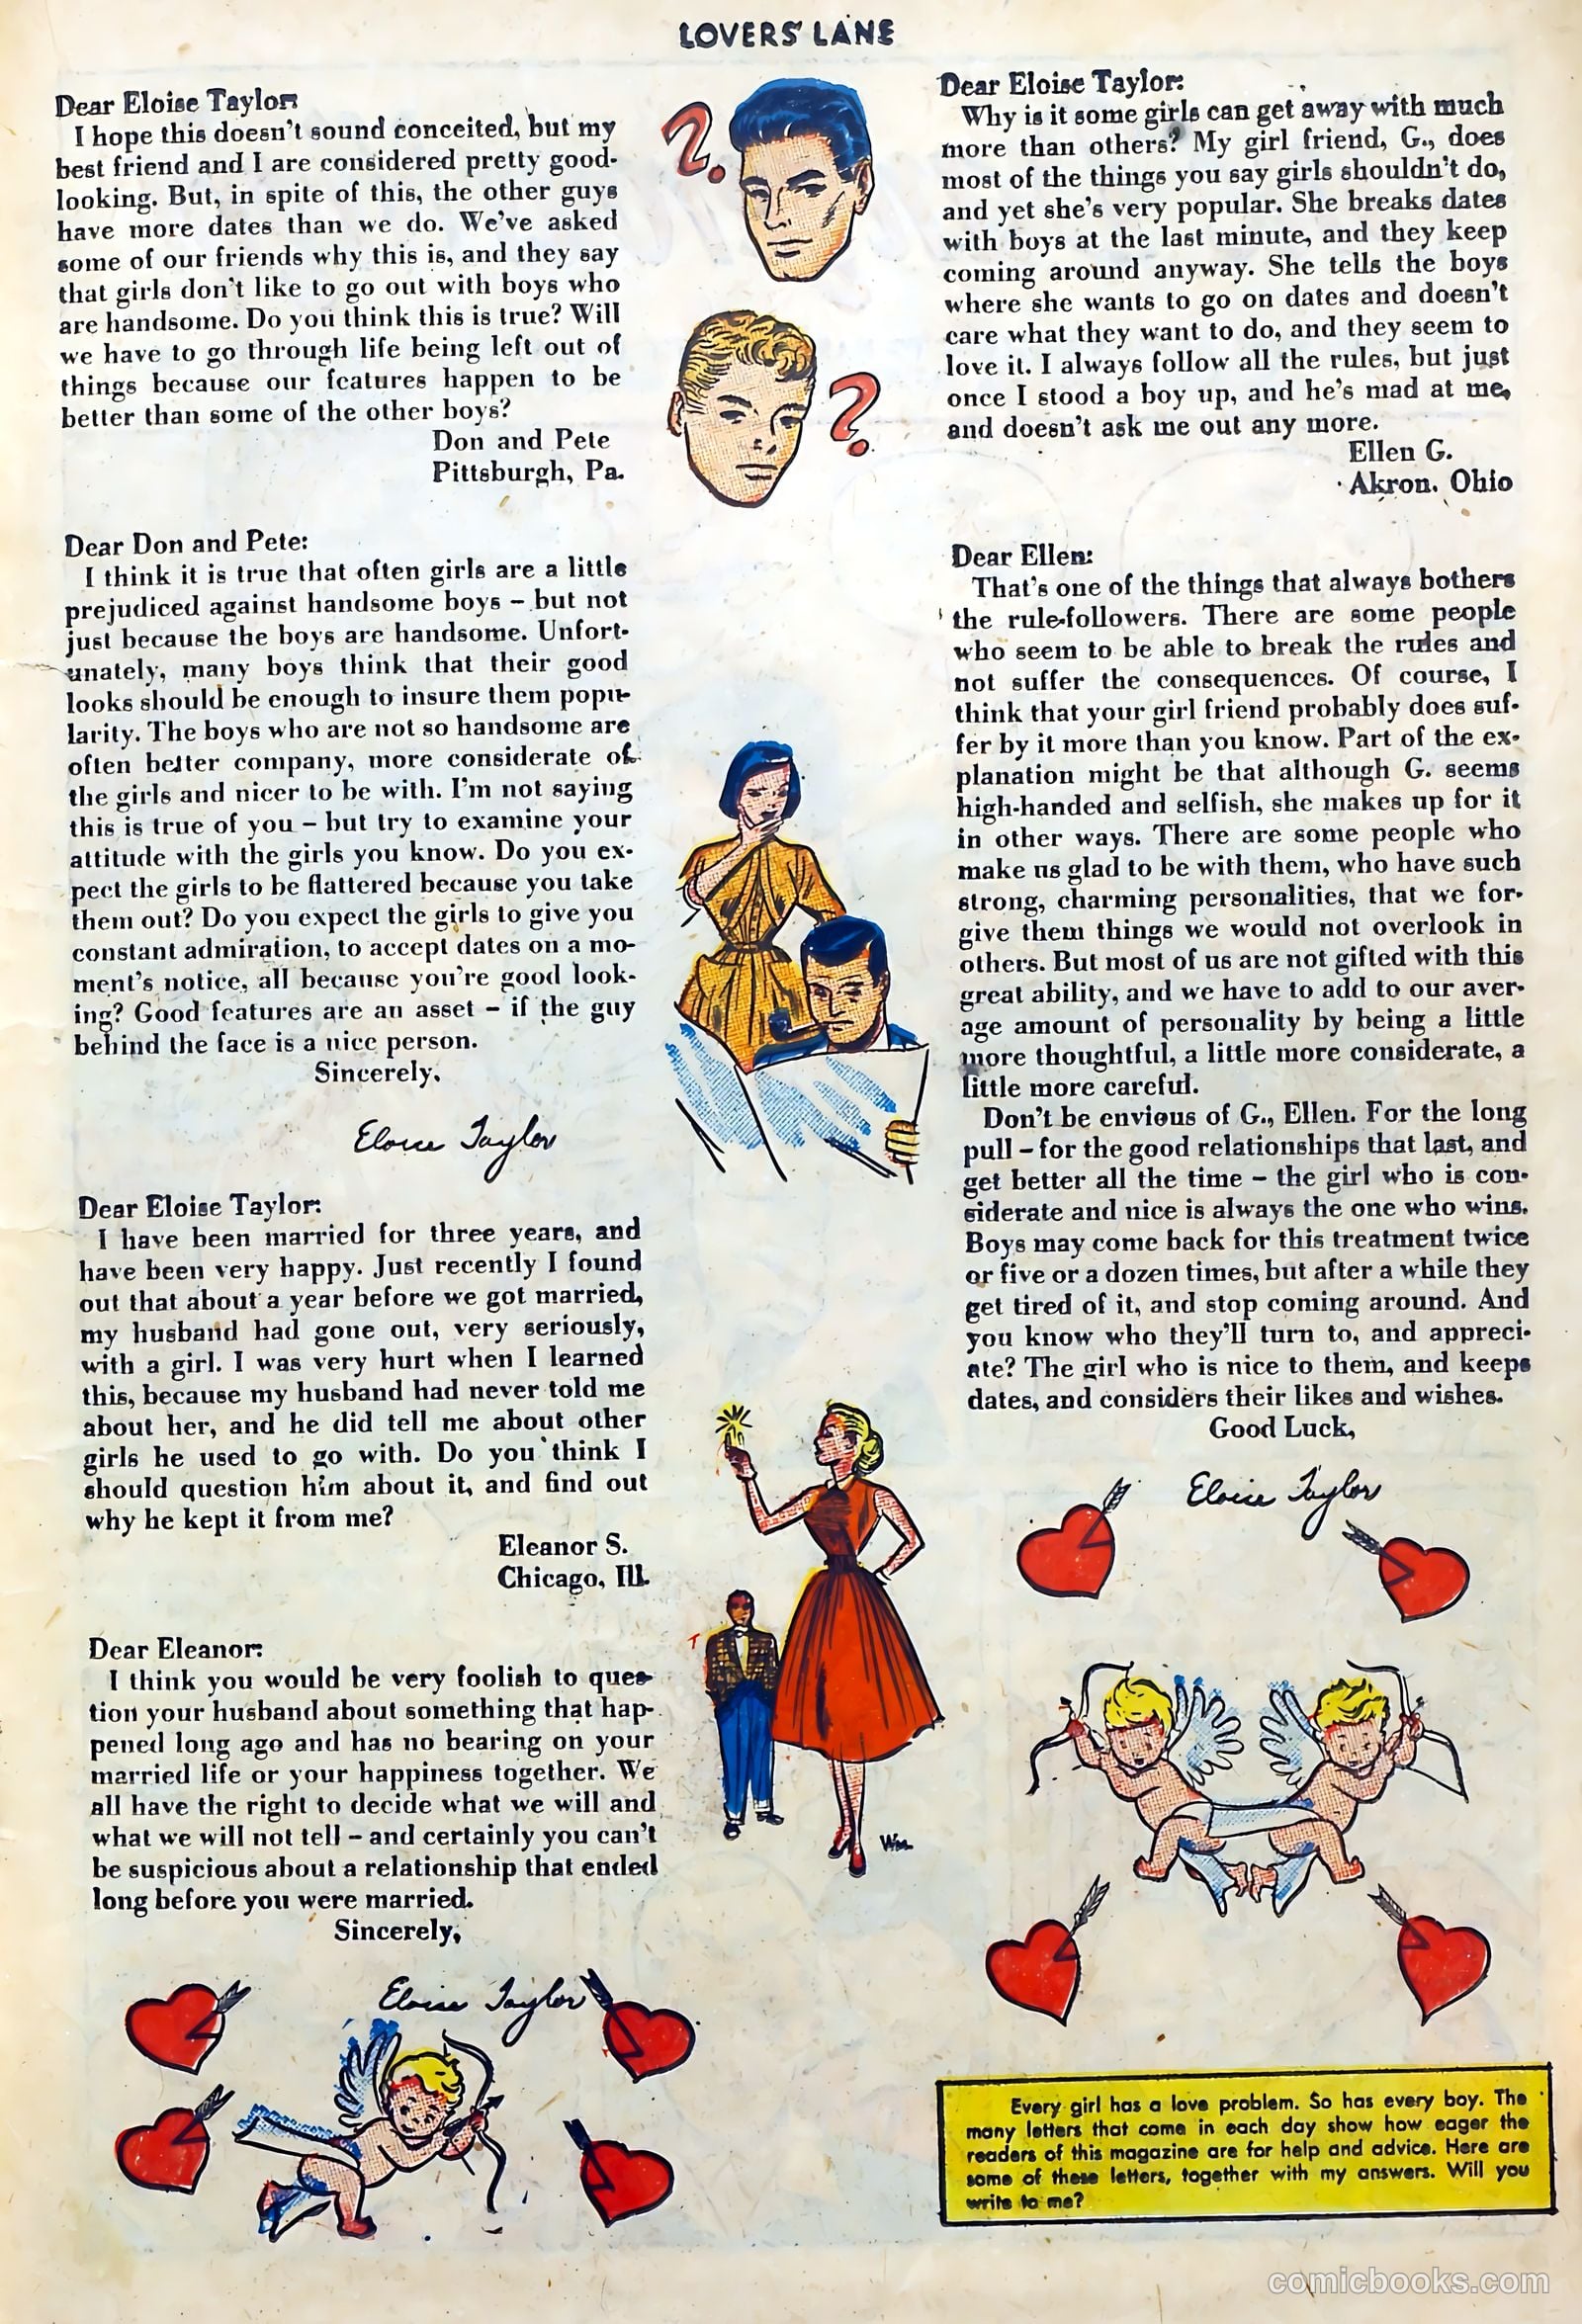 LOVERS' LANE
Dear Eloise Taylor:
I hope this doesn't sound conceited, but my
best friend and I are considered pretty good-
looking. But, in spite of this, the other guys
have more dates than we do. We've asked
some of our friends why this is, and they say
that girls don't like to go out with boys who
are handsome. Do you think this is true? Will
we have to go through life being left out of
things because our features happen to be
better than some of the other boys?
Don and Pete
Pittsburgh, Pa.
Dear Don and Pete:
I think it is true that often girls are a little
prejudiced against handsome boys – but not
just because the boys are handsome. Unfort-
unately, many boys think that their good
looks should be enough to insure them popu-
larity. The boys who are not so handsome are
often better company, more considerate of
the girls and nicer to be with. I'm not saying
this is true of you – but try to examine your
attitude with the girls you know. Do you ex-
pect the girls to be flattered because you take
them out? Do you expect the girls to give you
constant admiration, to accept dates on a mo-
ment's notice, all because you're good look-
ing? Good features are an asset – if the guy
behind the face is a nice person.
Sincerely,
Eloise Taylor
Dear Eloise Taylor:
I have been married for three years, and
have been very happy. Just recently I found
out that about a year before we got married,
my husband had gone out, very seriously,
with a girl. I was very hurt when I learned
this, because my husband had never told me
about her, and he did tell me about other
girls he used to go with. Do you think I
should question him about it, and find out
why he kept it from me?
Eleanor S.
Chicago, Ill.
Dear Eleanor:
I think you would be very foolish to ques-
tion your husband about something that hap-
pened long ago and has no bearing on your
married life or your happiness together. We
all have the right to decide what we will and
what we will not tell – and certainly you can't
be suspicious about a relationship that ended
long before you were married.
Sincerely,
Eloise Taylor
? ?
Wm.
Dear Eloise Taylor:
Why is it some girls can get away with much
more than others? My girl friend, G., does
most of the things you say girls shouldn't do,
and yet she's very popular. She breaks dates
with boys at the last minute, and they keep
coming around anyway. She tells the boys
where she wants to go on dates and doesn't
care what they want to do, and they seem to
love it. I always follow all the rules, but just
once I stood a boy up, and he's mad at me,
and doesn't ask me out any more.
Ellen G.
Akron, Ohio
Dear Ellen:
That's one of the things that always bothers
the rule-followers. There are some people
who seem to be able to break the rules and
not suffer the consequences. Of course, I
think that your girl friend probably does suf-
fer by it more than you know. Part of the ex-
planation might be that although G. seems
high-handed and selfish, she makes up for it
in other ways. There are some people who
make us glad to be with them, who have such
strong, charming personalities, that we for-
give them things we would not overlook in
others. But most of us are not gifted with this
great ability, and we have to add to our aver-
age amount of personality by being a little
more thoughtful, a little more considerate, a
little more careful.
Don't be envious of G., Ellen. For the long
pull – for the good relationships that last, and
get better all the time – the girl who is con-
siderate and nice is always the one who wins.
Boys may come back for this treatment twice
or five or a dozen times, but after a while they
get tired of it, and stop coming around. And
you know who they'll turn to, and appreci-
ate? The girl who is nice to them, and keeps
dates, and considers their likes and wishes.
Good Luck,
Eloise Taylor
Every girl has a love problem. So has every boy. The
many letters that come in each day show how eager the
readers of this magazine are for help and advice. Here are
some of these letters, together with my answers. Will you
write to me?
comicbooks.com